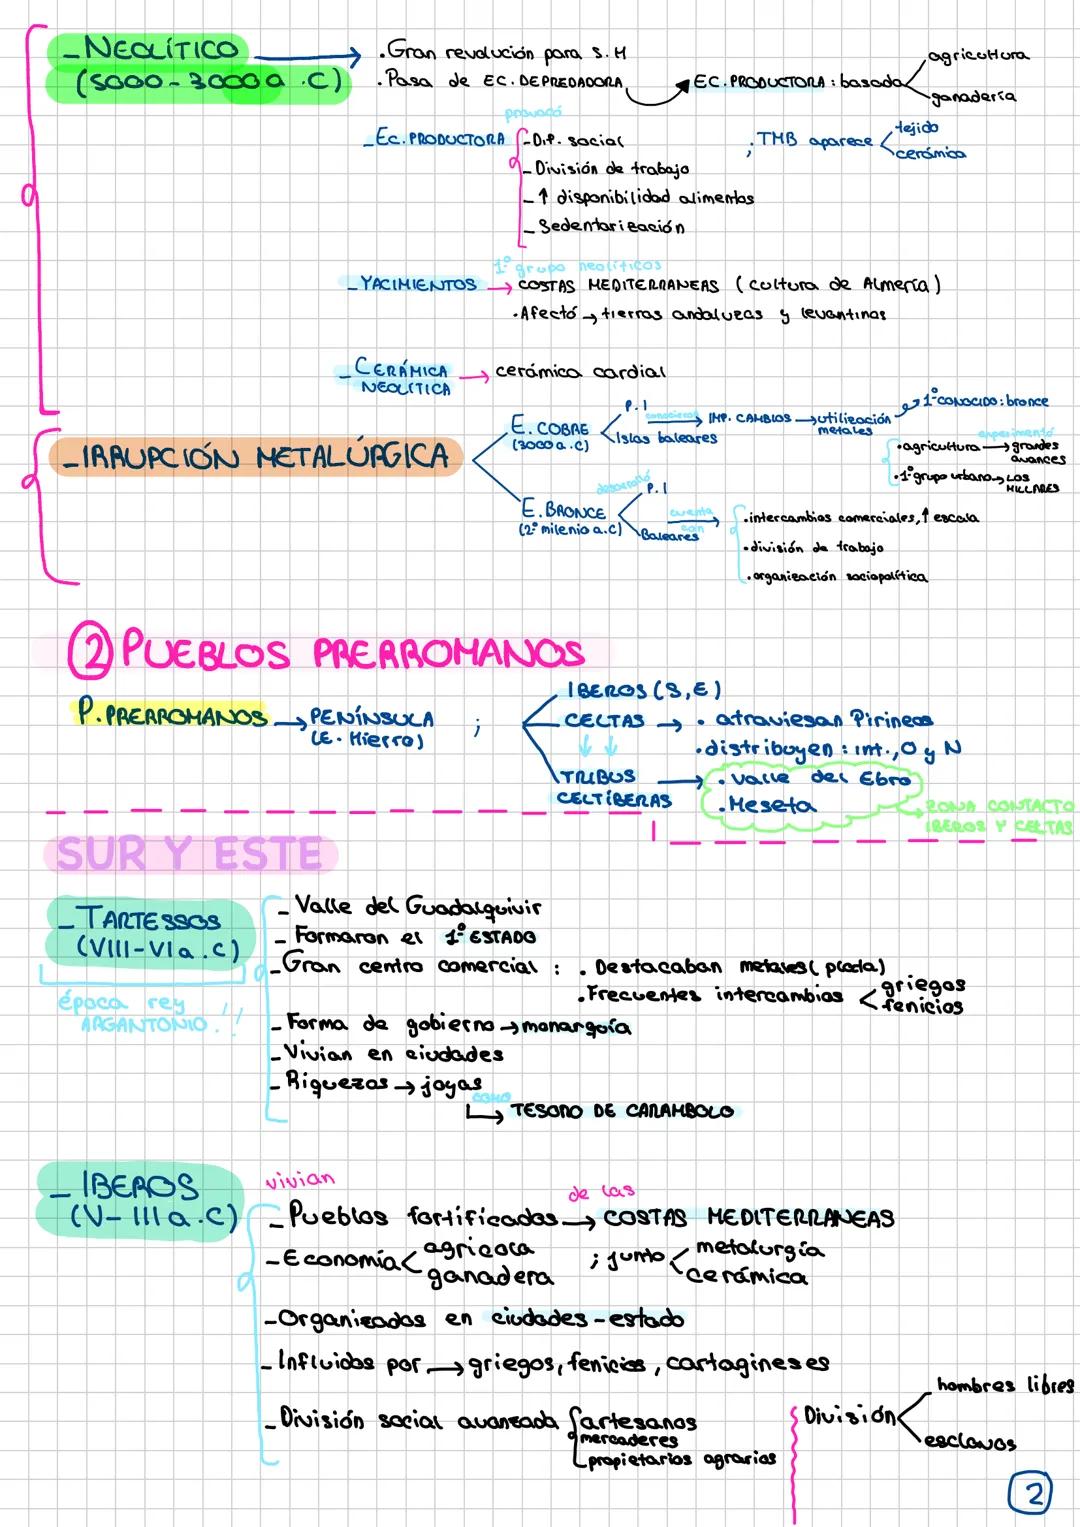 _NEOLÍTICO
(5000-3000 a.C)
.Gran revolución para S.H
.Pasa de EC. DEPREDADORA
EC. PRODUCTORA: basada
agricultura
ganadería
provocó
_EC. PRODUCTORA
-Dif. social
; TMB aparece
tejido
cerámica
- División de trabajo
- ↑ disponibilidad alimentos
- Sedentarización
1º grupo neolíticos
_YACIMIENTOS → COSTAS MEDITERRANEAS (cultura de Almería)
·Afectó → tierras andaluzas y levantinas
_CERÁMICA NEOLÍTICA → cerámica cardial
_IRRUPCIÓN METALÚRGICA
E. COBRE
(3000 a.C)
P.I
Islas baleares
conocieron
IMP. CAMBIOS → utilización metales
1º CONOCIDO: bronce
experimentó
·agricultura → grandes avances
·1º grupo urbano → LOS MILLARES
E. BRONCE
(2º milenio a.C)
desarrolló
P.I
Baleares
cuenta con
·intercambios comerciales, ↑ escala
·división de trabajo
·organización sociopolítica
② PUEBLOS PRERROMANOS
P. PRERROMANOS → PENÍNSULA
(E. Hierro)
;
IBEROS (S, E)
CELTAS → · atraviesan Pirineos
·distribuyen: int., O y N
TRIBUS CELTÍBERAS → · Valle del Ebro
·Meseta
ZONA CONTACTO
IBEROS Y CELTAS
SUR Y ESTE
_TARTESSOS
(VIII-VI a.C)
época rey
ARGANTONIO !!
- Valle del Guadalquivir
- Formaron el 1º ESTADO
-Gran centro comercial : . Destacaban metales (plata)
.Frecuentes intercambios
griegos
fenicios
- Forma de gobierno → monarquía
- Vivian en ciudades
- Riquezas → joyas
como
TESORO DE CARAMBOLO
_IBEROS
(V-III a.C)
vivian
de las
- Pueblos fortificados → COSTAS MEDITERRANEAS
-Economía
agrícola
ganadera
; junto
metalurgia
cerámica
-Organizados en ciudades-estado
- Influidos por → griegos, fenicios, cartagineses
- División social avanzada
artesanos
mercaderes
propietarios agrarios
División
hombres libres
esclavos
2